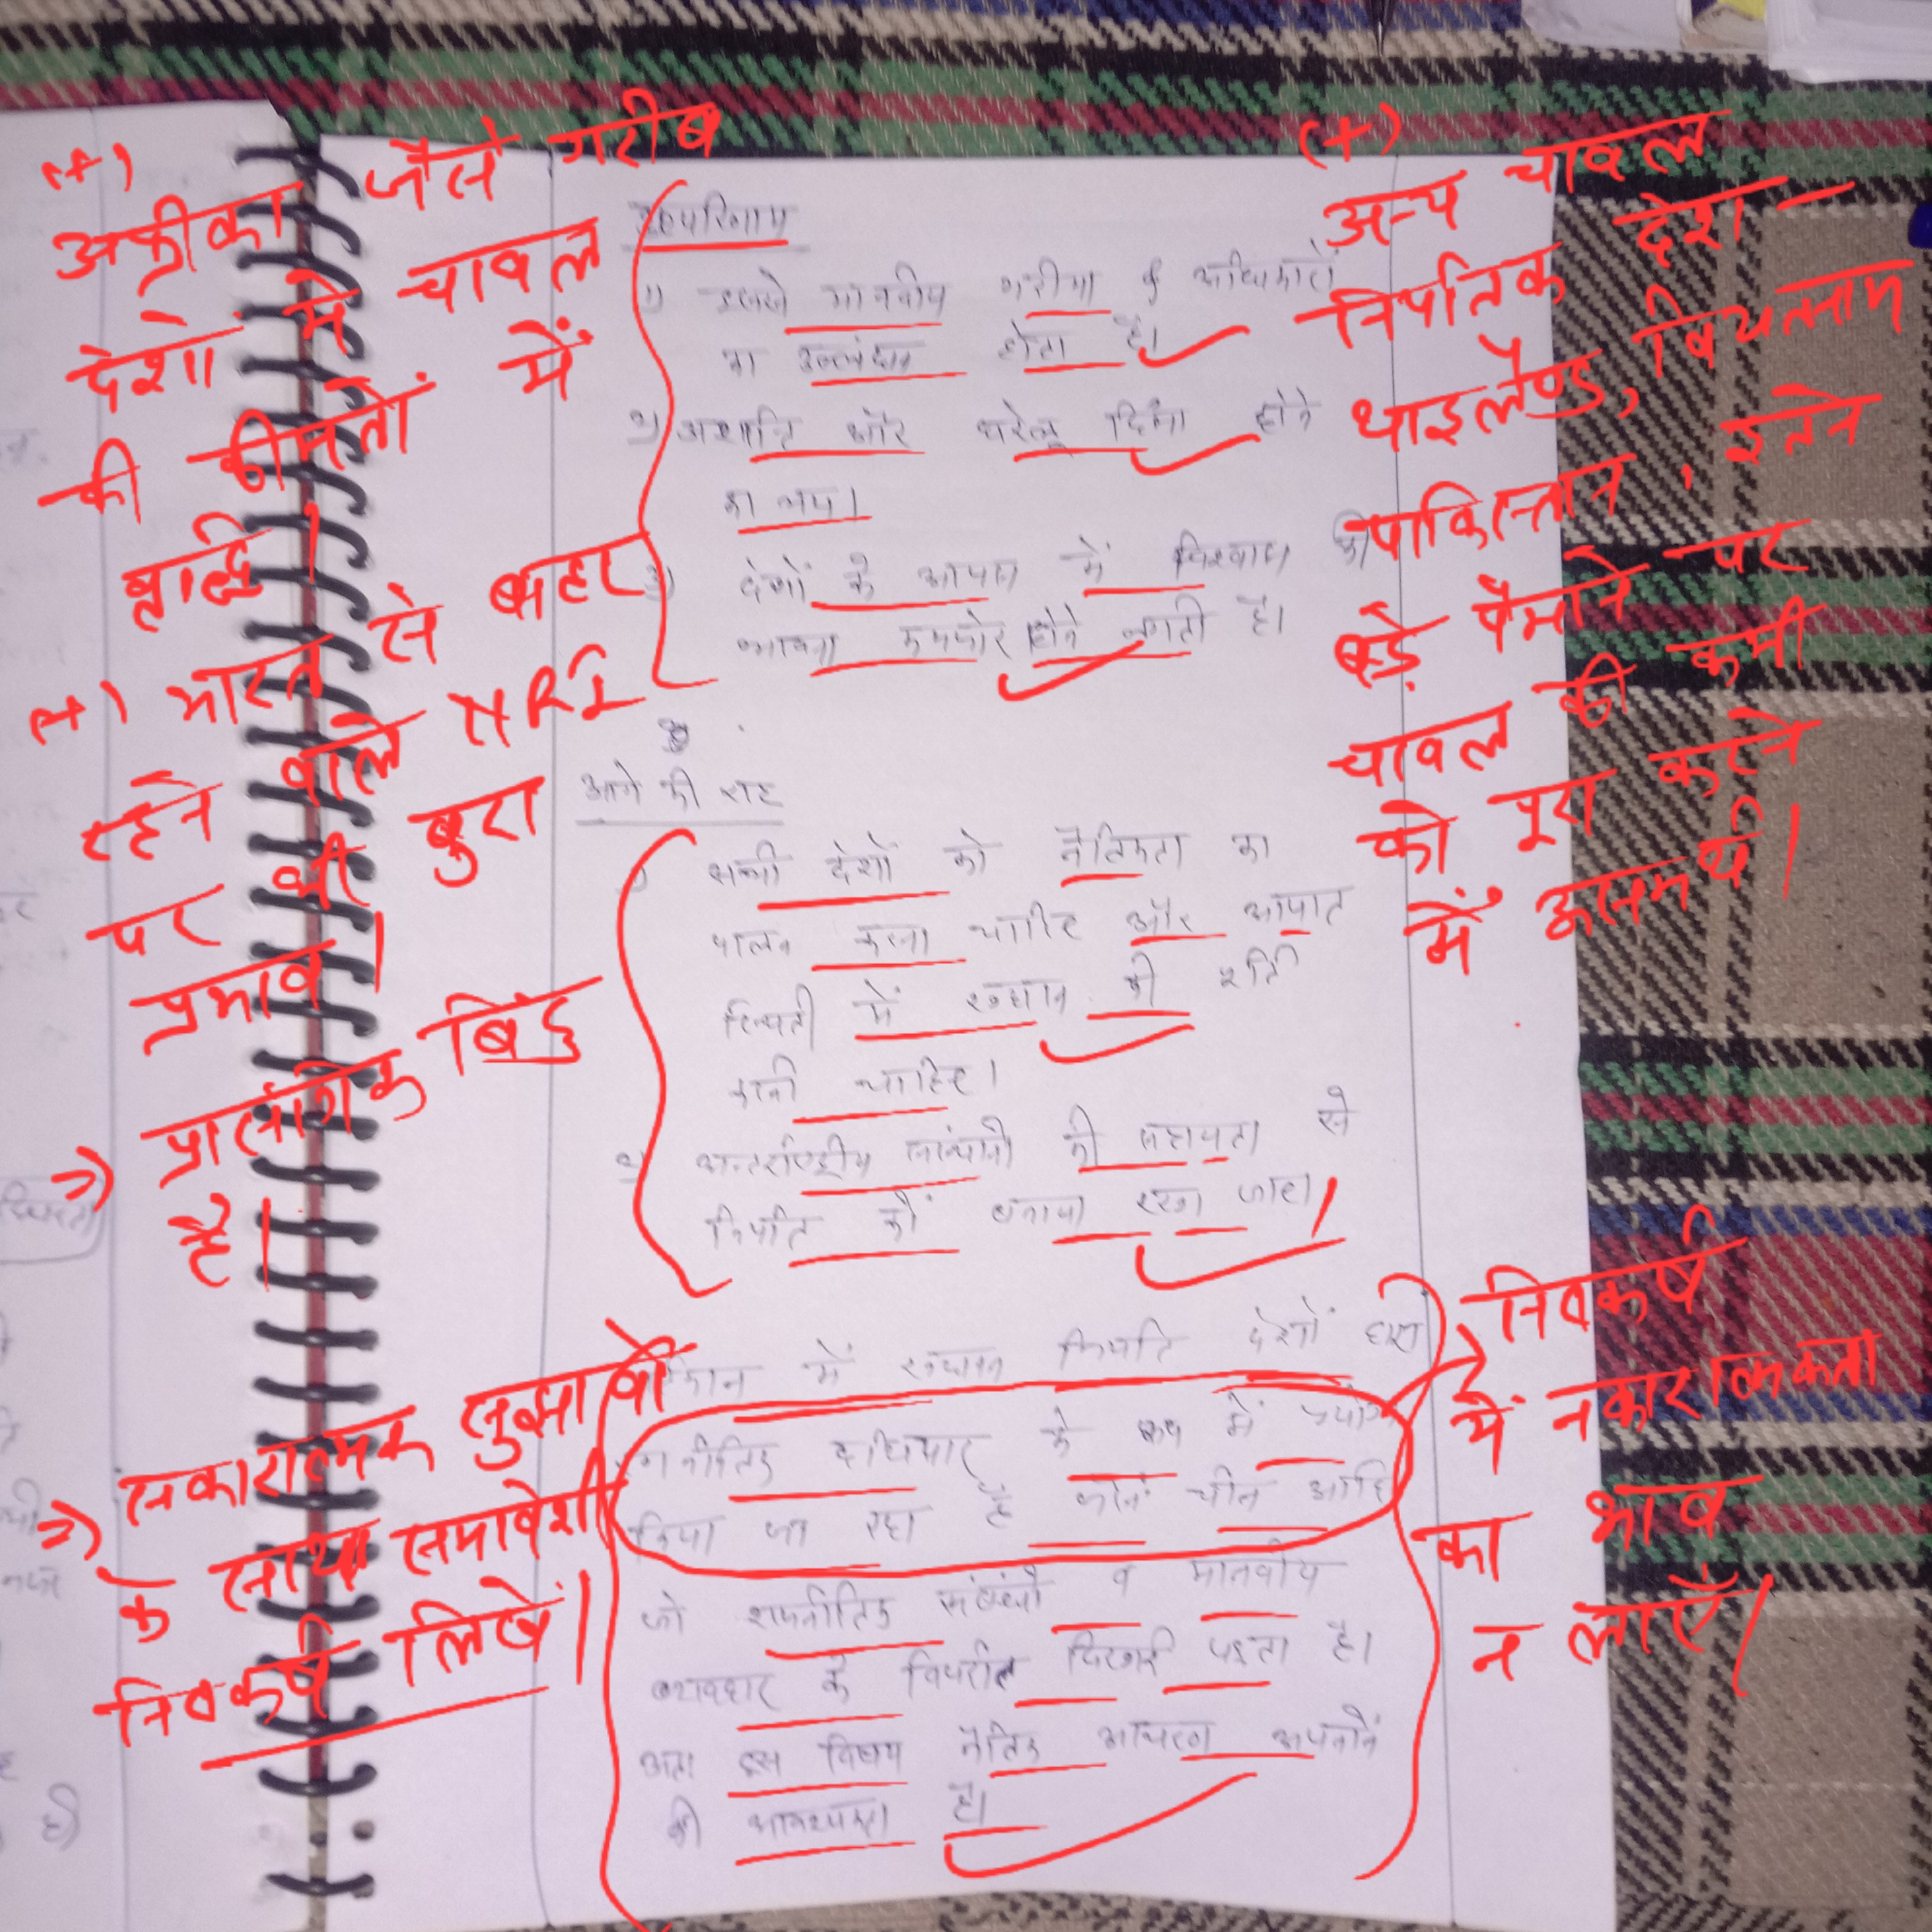 (+)
अफ्रीका जैसे गरीब
देशों में चावल
की कीमतों में
बृद्धि ।
(+) भारत से बाहर
रहने वाले NRI
पर भी बुरा
प्रभाव ।
=) प्रासंगिक बिंदु
है ।
=) सकारात्मक सुझावों
के साथ समावेशी
निष्कर्ष लिखें ।
1) इससे मानवीय गरीमा व अधिकारों
का उल्लंघन होता है।
2) अशांति और घरेलू हिंसा होने
का भय ।
3) देशों के आपस में विश्वास की
भावना कमजोर होने लगती है।
आगे की राह
1) सभी देशों को नैतिकता का
पालन करना चाहिए और आपात
स्थिती में रुझान की
करनी चाहिए ।
2) अन्तर्राष्ट्रीय संस्थानों की सहायता से
निर्यात को बनाया रखा जाए।
में निर्यात देशों द्वारा
राजनीतिक हथियार के रूप में प्रयोग
किया जा रहा है चीन आदि
जो राजनीतिक संबंधों व मानवीय
व्यवहार के विपरीत दिखाई पड़ता है।
अतः इस विषय नैतिक आचरण अपनाने
की आवश्यकता है।
(+)
अन्य चावल
निर्यातक देश –
थाइलैण्ड, वियतनाम
पाकिस्तान, इतने
बड़े पैमाने पर
चावल की कमी
को पूरा करने
में असमर्थ ।
निष्कर्ष
में नकारात्मकता
का भाव
न लाएँ ।